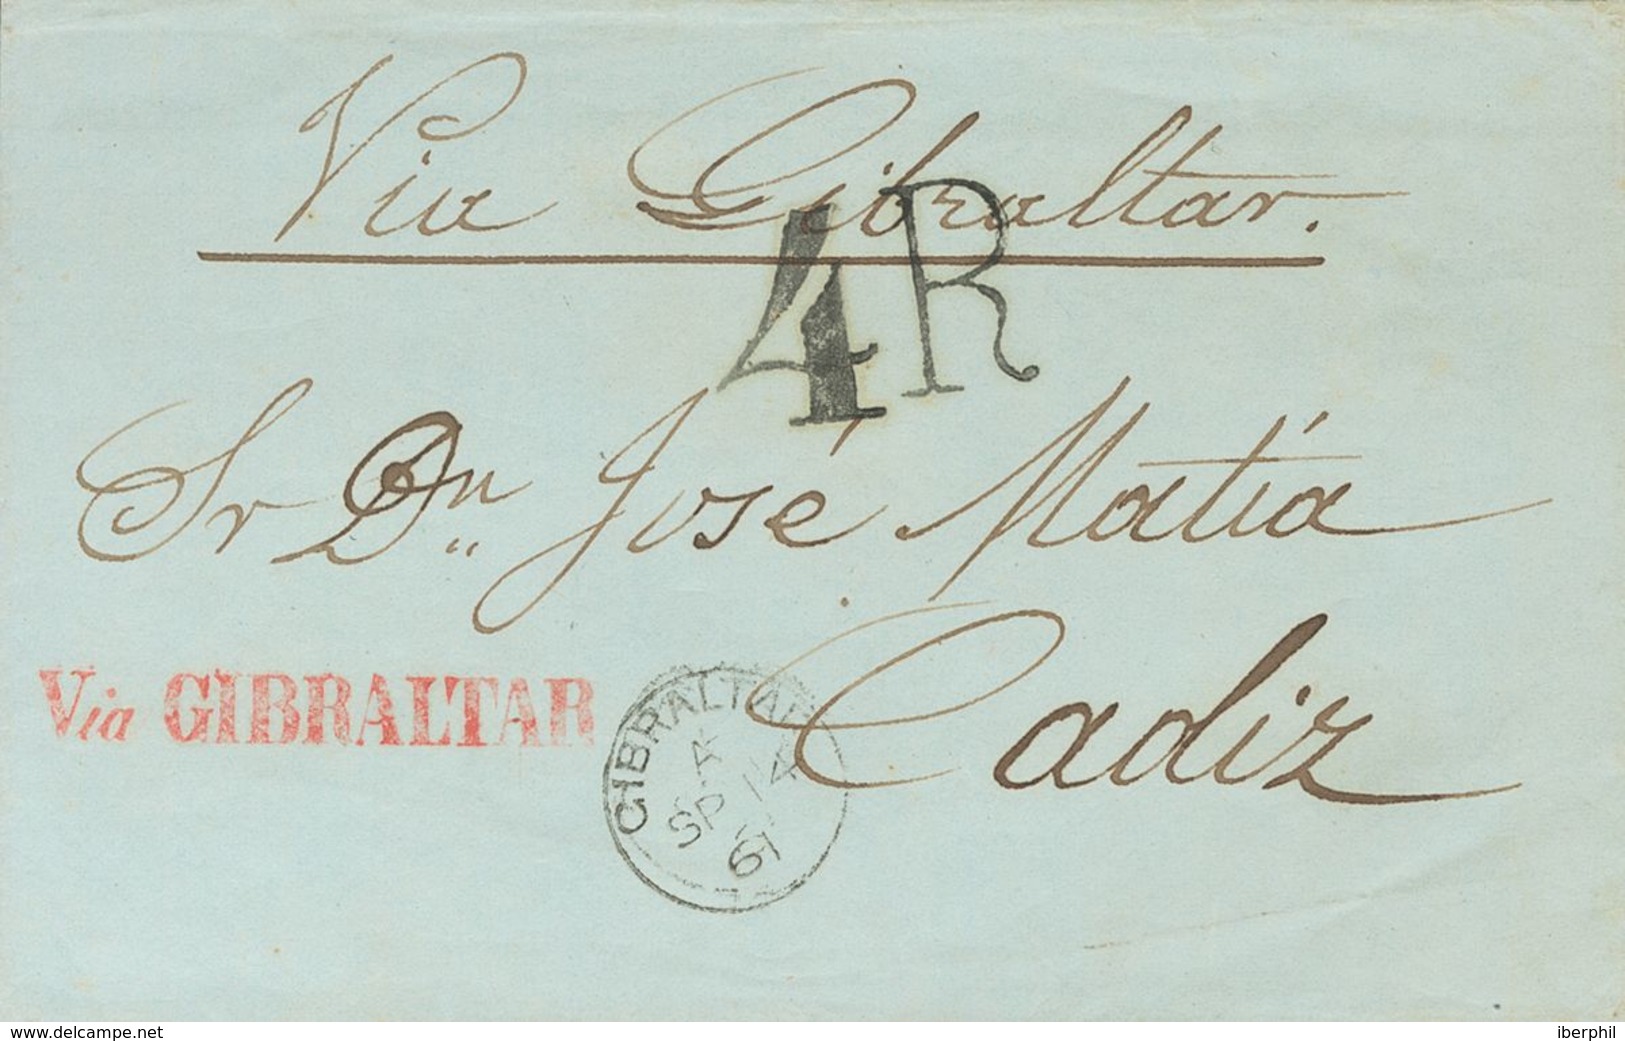 Via Gibraltar.
4R
Sr Dn José Matía
Via GIBRALTAR
GIBRALTAR
A
SP 14
67
Cadiz
www.delcampe.net
iberphil